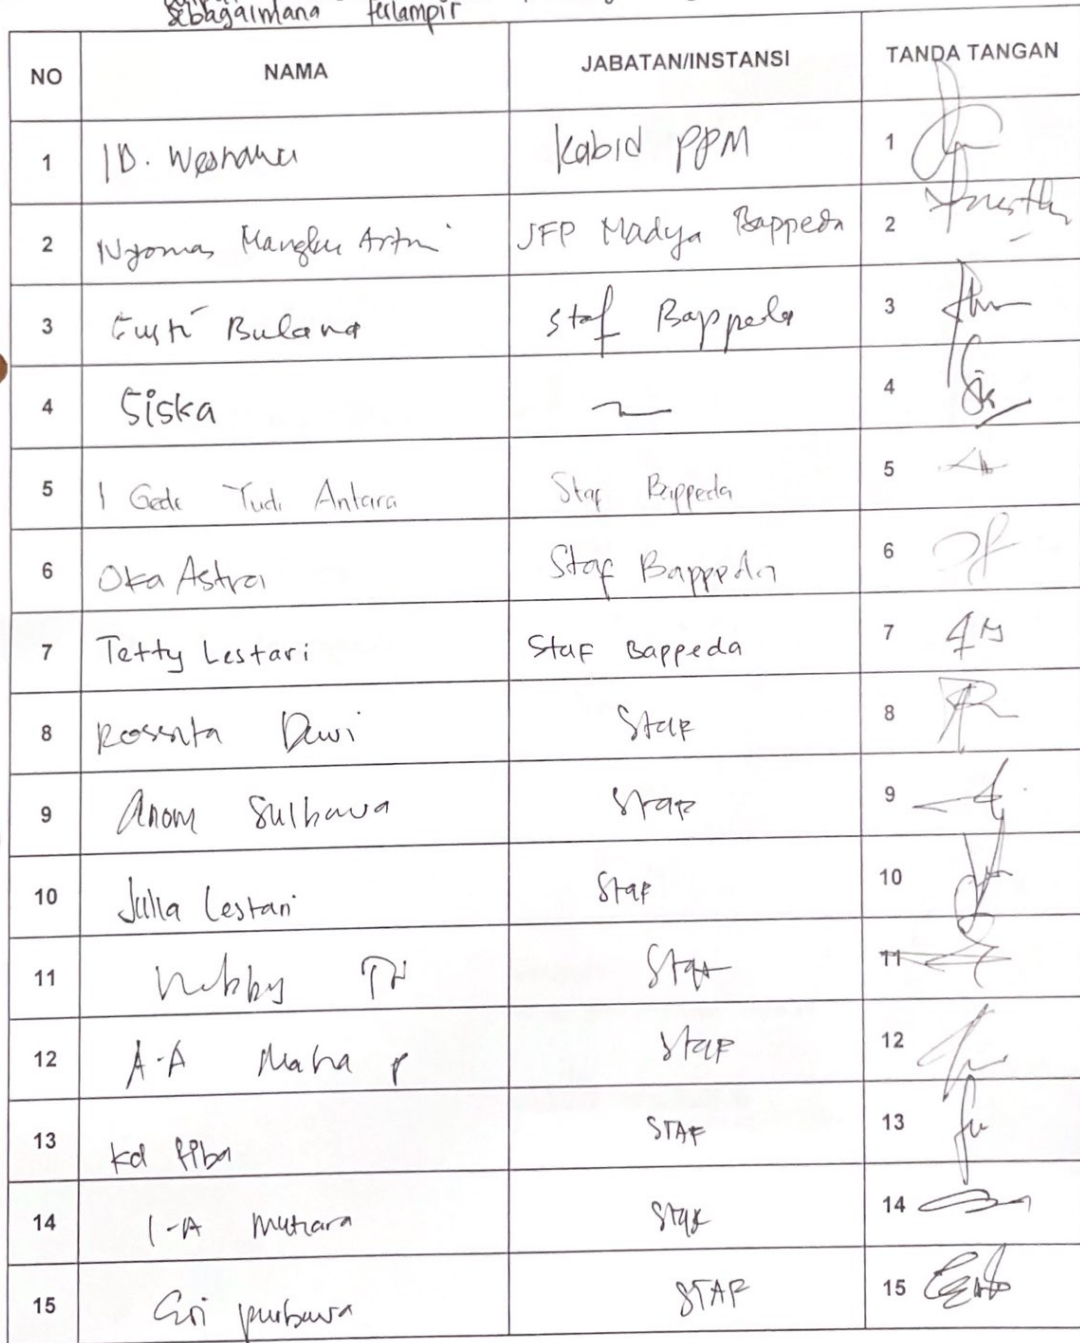 sebagaimana terlampir
NO NAMA JABATAN/INSTANSI TANDA TANGAN
1 Kabid PPM 1
2 Nyoman Mangku JFP Madya Bappeda 2
3 Bulana staf Bappeda 3
4 Siska 4
5 I Gede Yudi Antara Staf Bappeda 5
6 Oka Astra Staf Bappeda 6
7 Tetty Lestari Staf Bappeda 7
8 Dewi Staf 8
9 Anom Staf 9
10 Julia Lestari Staf 10
11 Staf 11
12 A-A Maha P Staf 12
13 Kd STAF 13
14 I-A Mutiara Staf 14
15 STAF 15